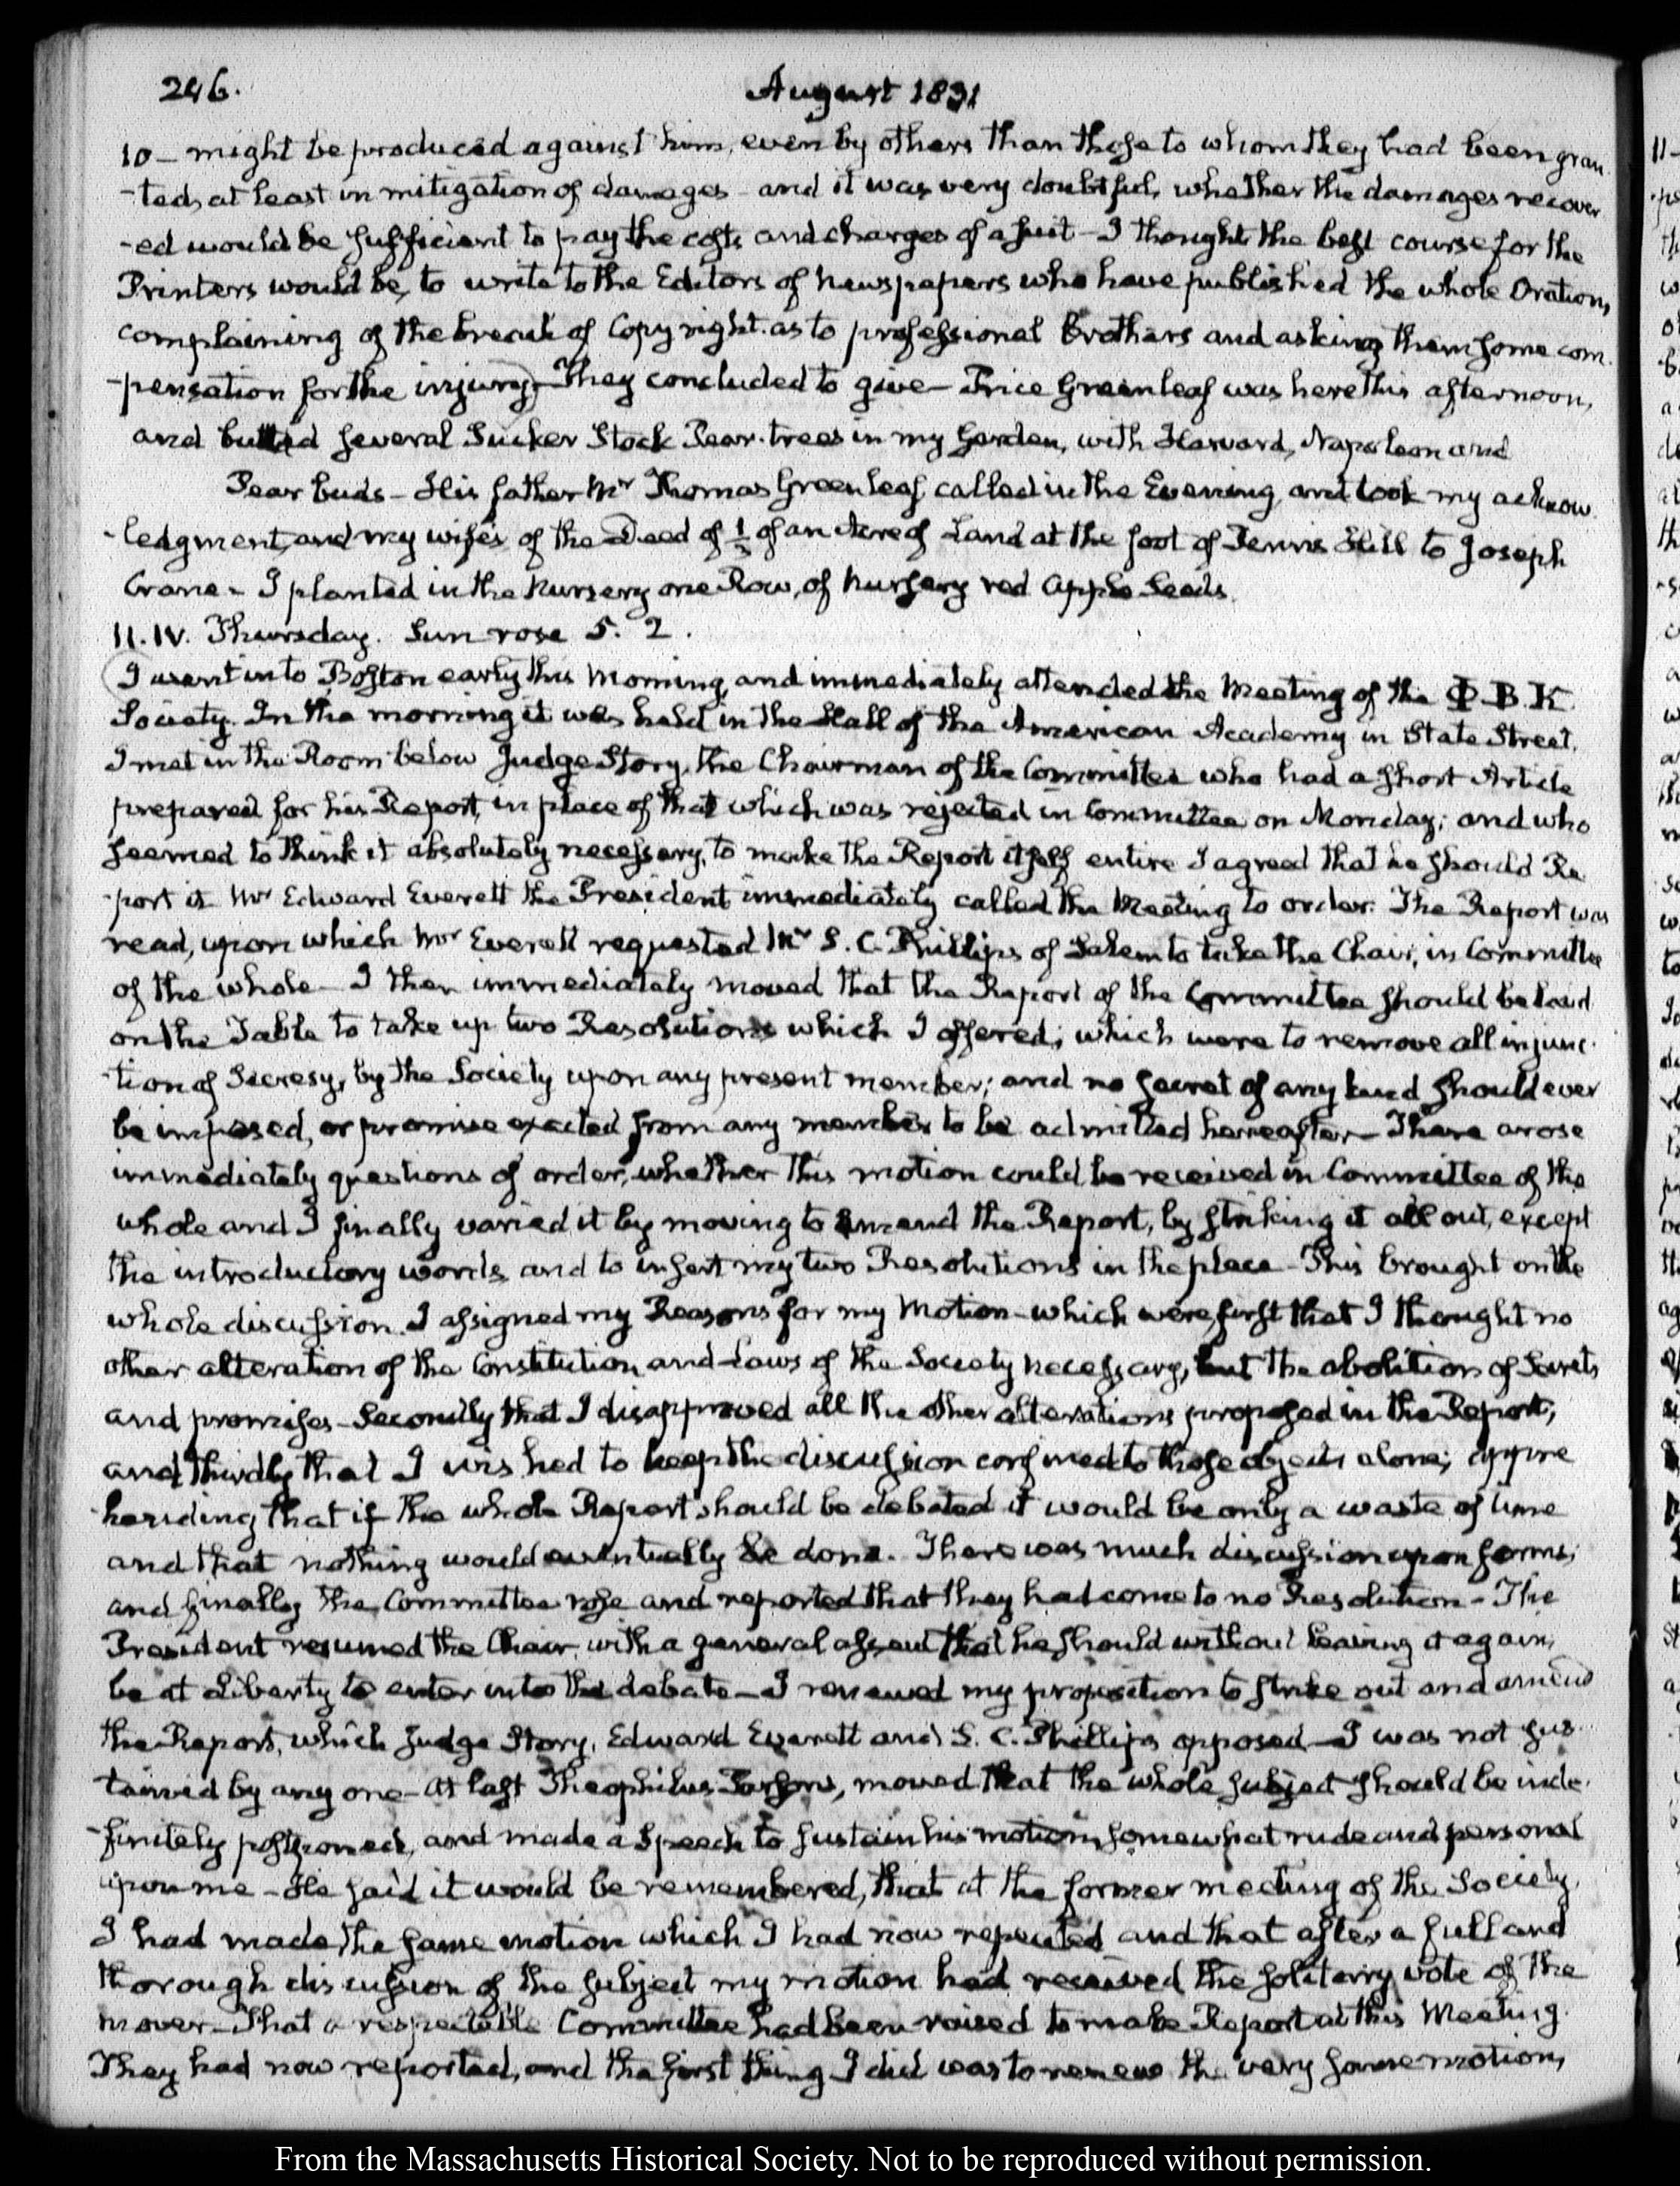 246.
August 1831
10 – might be produced against him, even by others than those to whom they had been gran
-ted, at least in mitigation of damages – and it was very doubtful, whether the damages recover
-ed would be sufficient to pay the costs and charges of a suit – I thought the best course for the
Printers would be, to write to the Editors of Newspapers who have published the whole Oration,
complaining of the breach of Copy right. as to professional Brothers and asking them some com
-pensation for the injury. They concluded to give – Price Greenleaf was here this afternoon,
and budded several Sucker Stock Pear-trees in my Garden, with Harvard, Napoleon and
Pear buds – His father Mr Thomas Greenleaf, called in the Evening, and took my acknow
-ledgment, and my wife's of the Deed of of an Acre of Land at the foot of Penn's Hill to Joseph
Crane – I planted in the Nursery one Row, of Nursery red Apple Seeds.
11. IV. Thursday. Sun rose 5. 2.
I went into Boston early this Morning, and immediately attended the Meeting of the Φ.B.K.
Society. In the morning it was held in the Hall of the American Academy in State Street.
I met in the Room below Judge Story, the Chairman of the Committee who had a short Article
prepared for his Report, in place of that which was rejected in Committee on Monday; and who
seemed to think it absolutely necessary, to make the Report itself entire I agreed that he should Re
-port it Mr Edward Everett the President immediately called the Meeting to order. The Report was
read, upon which Mr Everett requested Mr S. C. Phillips of Salem to take the Chair, in Committee
of the whole – I then immediately moved that the Report of the Committee should be laid
on the Table to take up two Resolutions which I offered; which were to remove all injunc
-tion of Secresy, by the Society upon any present member; and no secret of any kind should ever
be imposed, or promise exacted from any member to be admitted hereafter – There arose
immediately questions of order, whether this motion could be received in Committee of the
whole and I finally varied it by moving to amend the Report, by striking it all out, except
the introductory words, and to insert my two Resolutions in the place – This brought on the
whole discussion. I assigned my Reasons for my Motion – which were, first that I thought no
other alteration of the Constitution and Laws of the Society necessary, but the abolition of Secrets
and promises – Secondly that I disapproved all the other alterations proposed in the Report;
and thirdly that I wished to keep the discussion confined to those objects alone; appre
-hending that if the whole Report should be debated it would be only a waste of time
and that nothing would eventually be done. There was much discussion upon forms;
and finally the Committee rose and reported that they had come to no Resolution – The
President resumed the Chair, with a general assent that he should without leaving it again,
be at Liberty to enter into the debate – I renewed my proposition to strike out and amend
the Report, which Judge Story, Edward Everett and S. C. Phillips opposed – I was not sus
-tained by any one – At last Theophilus Parsons, moved that the whole subject should be inde
-finitely postponed, and made a Speech to sustain his motion, somewhat rude and personal
upon me – He said it would be remembered, that at the former meeting of the Society,
I had made the same motion which I had now repeated and that after a full and
thorough discussion of the subject my motion had received the solitary vote of the
mover – That a respectable Committee had been raised to make Report at this Meeting.
They had now reported, and the first thing I did was to renew the very same motion,
From the Massachusetts Historical Society. Not to be reproduced without permission.